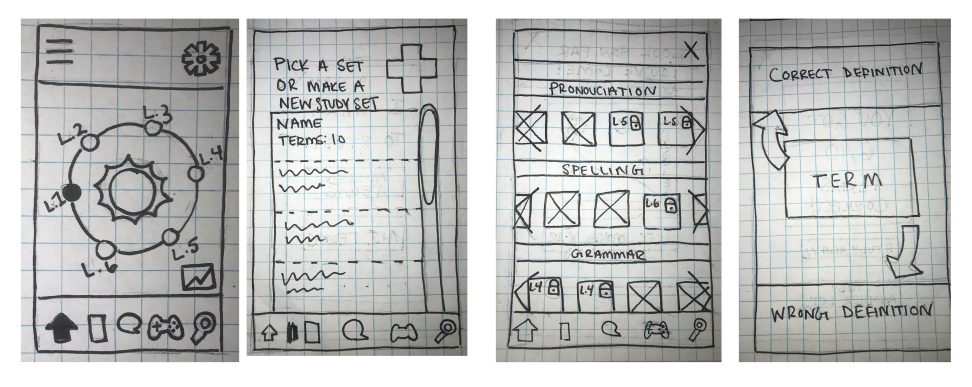 L.2
L.3
L.4
L.1
L.5
L.6
PICK A SET
OR MAKE A
NEW STUDY SET
NAME
TERMS: 10
X
PRONOUCIATION
L.5
L.5
SPELLING
L.6
GRAMMAR
L.4
L.4
CORRECT DEFINITION
TERM
WRONG DEFINITION